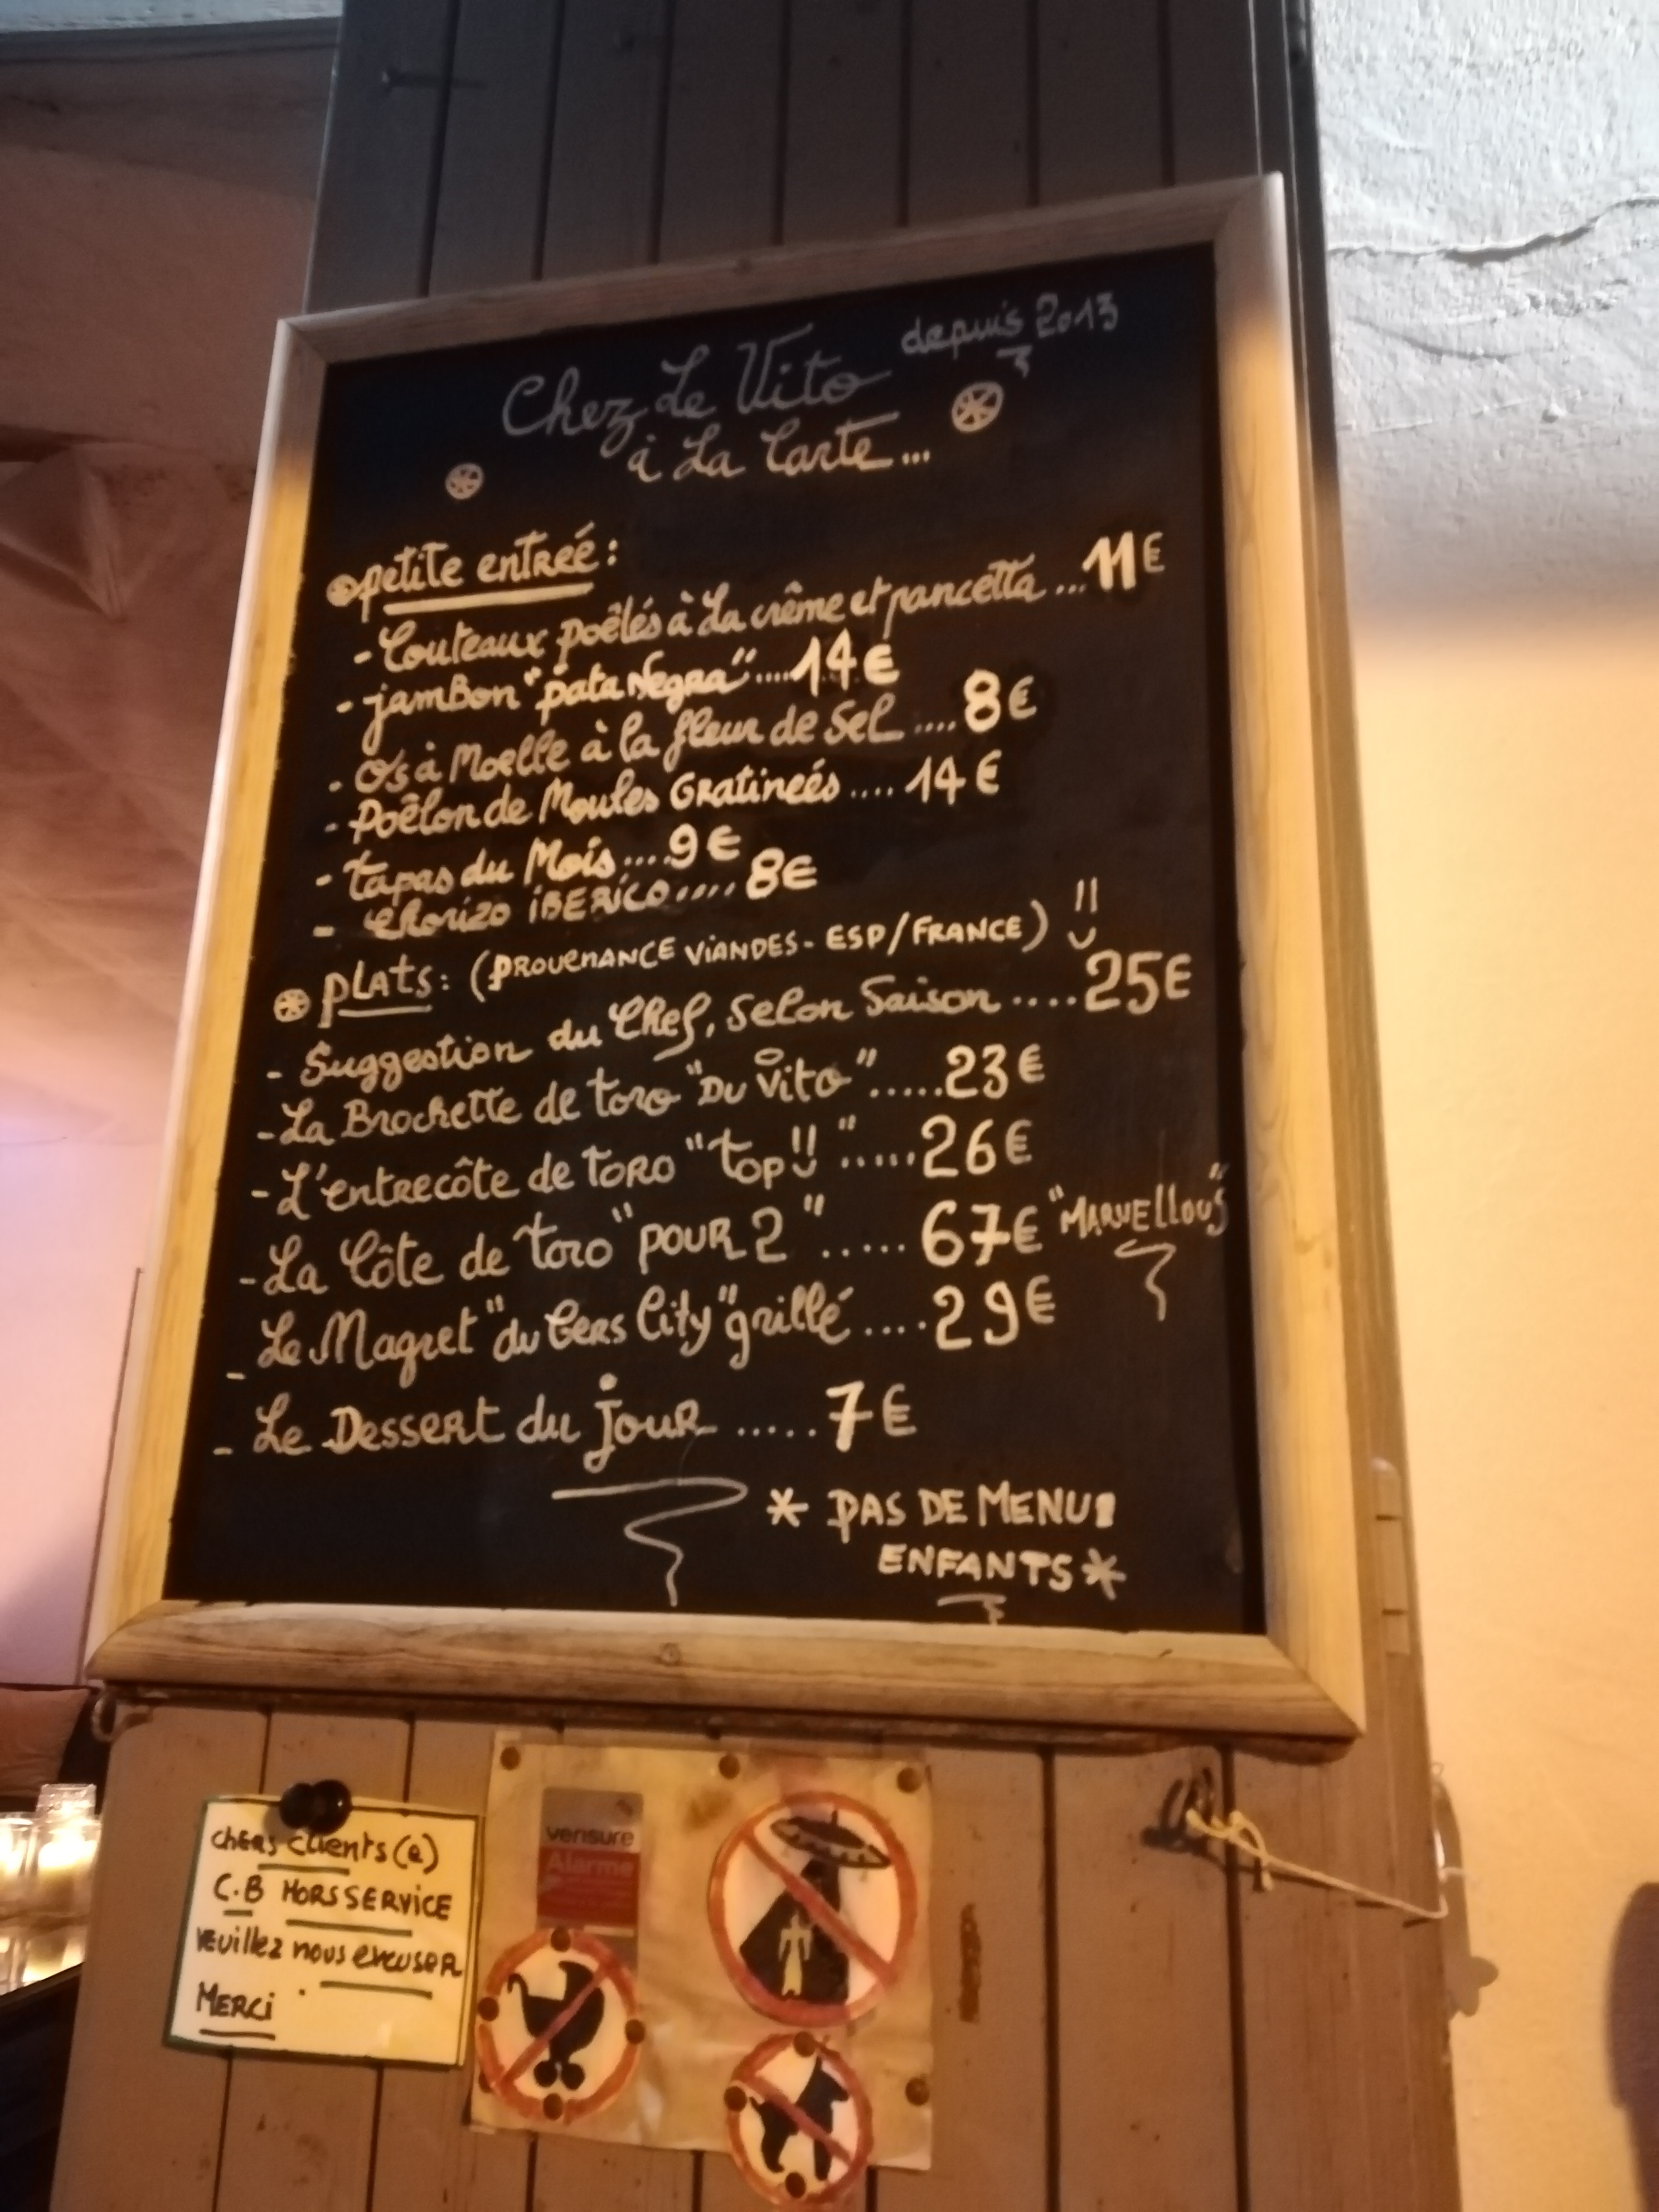 Chez Le Vito depuis 2013
à La Carte...
petite entreé :
- Couteaux poêlés à La crême et pancetta ... 11€
- jamBon "pata Negra" ..... 14€
- Os à Moelle à la fleur de Sel .... 8€
- Poêlon de Moules Gratineés .... 14€
- tapas du Mois .... 9€
- Chorizo iBERiCO .... 8€
PLAts : (PROVENANCE ViANDES - ESP/FRANCE) !!
- Suggestion du Chef, Selon Saison .... 25€
- La Brochette de toro "Du Vito" ..... 23€
- L'entrecôte de TORO "top!!" ..... 26€
- La Côte de toro "POUR 2" ..... 67€ "MARVELLOUS"
- Le Magret "du Gers City" grillé .... 29€
- Le Dessert du jour ..... 7€
* PAS DE MENUS
ENFANTS *
chers clients (e)
C.B HORS SERVICE
VEuillez nous excuser
MERCi
verisure
Alarme